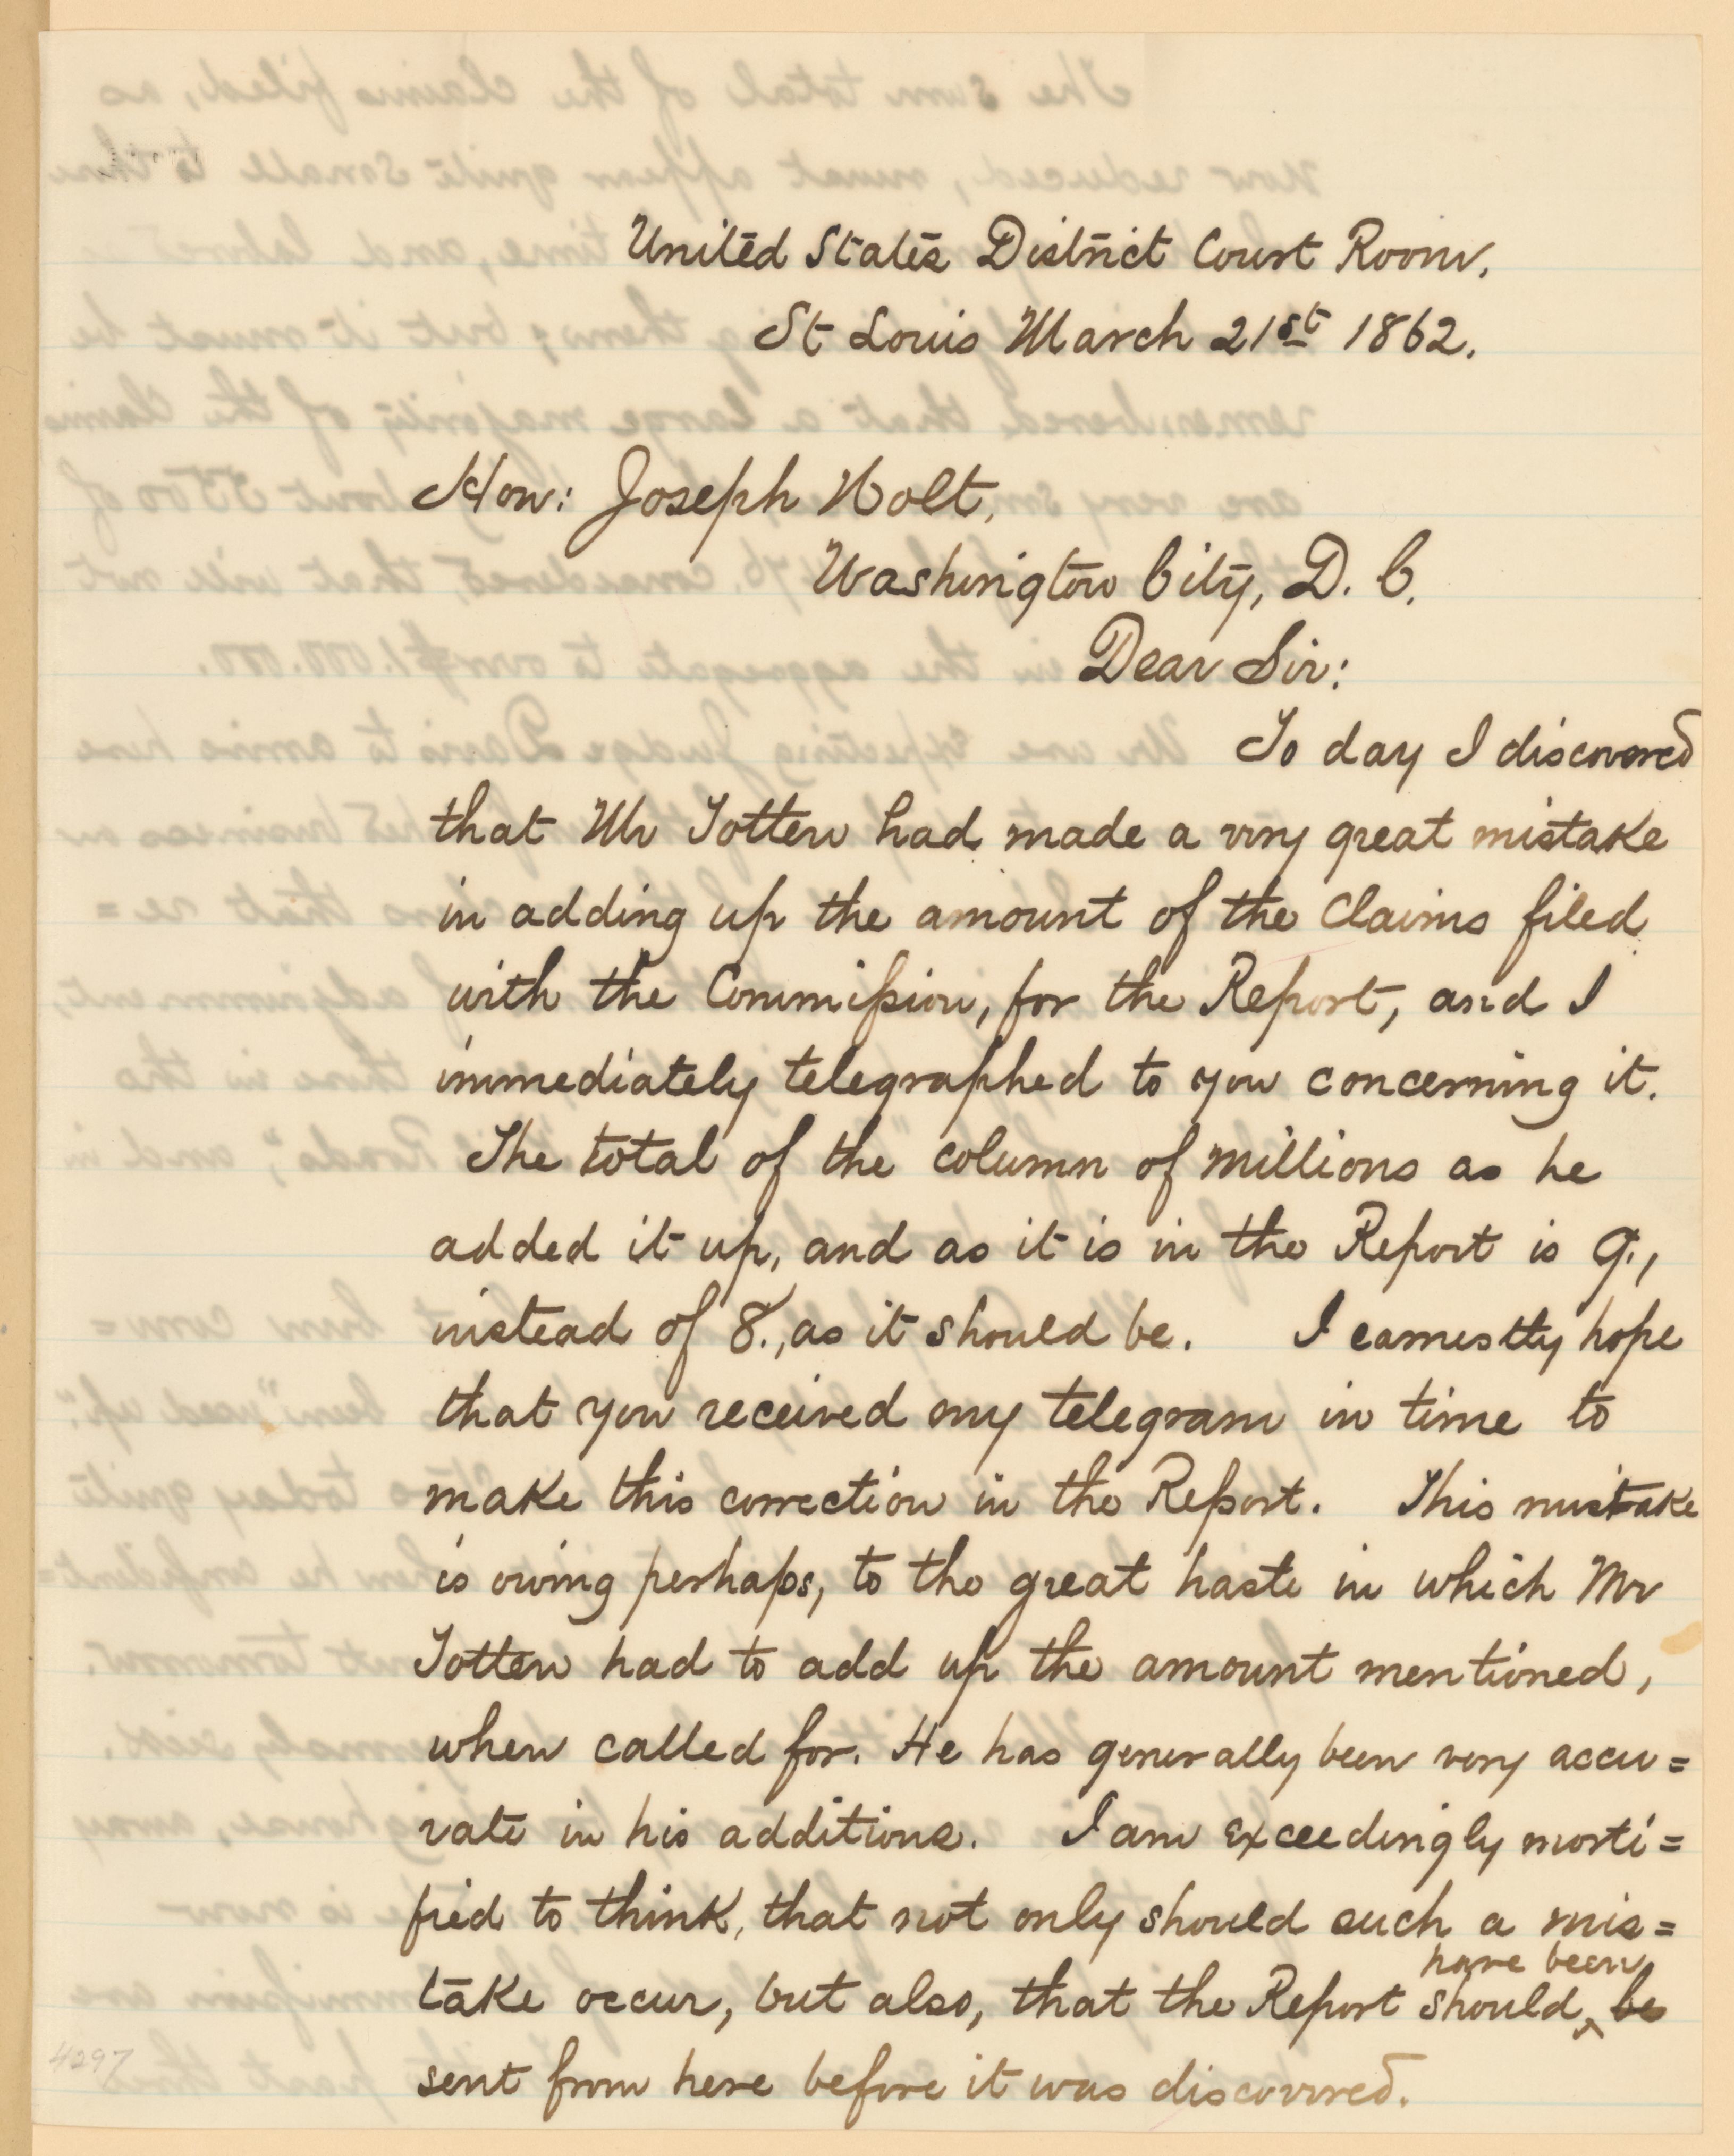 United States District Court Room.
St Louis March 21st 1862.
Hon: Joseph Holt,
Washington City, D. C.
Dear Sir:
To day I discovered
that Mr Totten had made a very great mistake
in adding up the amount of the Claims filed
with the Commission, for the Report, and I
immediately telegraphed to you concerning it.
The total of the column of millions as he
added it up, and as it is in the Report is 9.,
instead of 8., as it should be. I earnestly hope
that you received my telegram in time to
make this correction in the Report. This mistake
is owing perhaps, to the great haste in which Mr
Totten had to add up the amount mentioned,
when called for. He has generally been very accu=
rate in his additions. I am exceedingly morti=
fied to think, that not only should such a mis=
have been
take occur, but also, that the Report should ‸ be
sent from here before it was discovered.
4297